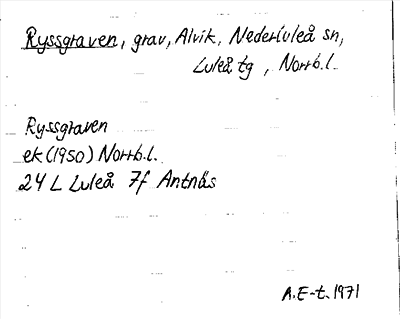 Ryssgraven, grav, Alvik, Nederluleå sn,
Luleå tg, Norrb.l.
Ryssgraven
ek (1950) Norrb.l.
24 L Luleå 7f Antnäs
A.E-t. 1971